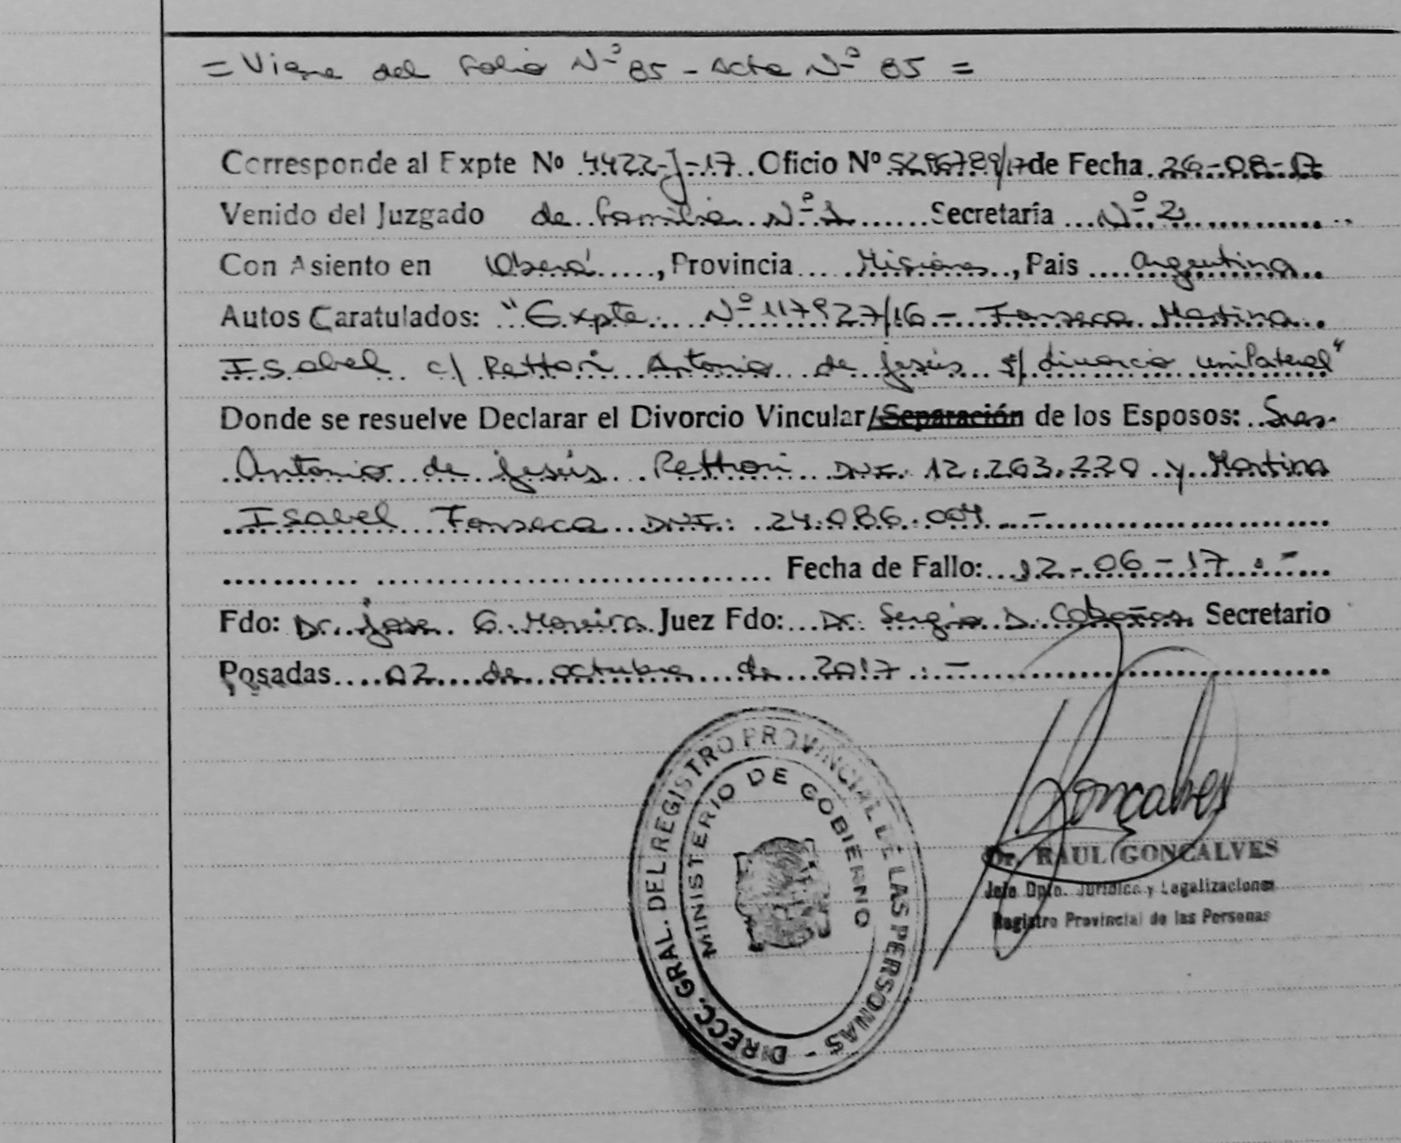 = Viene del Folio Nº 85 - Acta Nº 85 =
Corresponde al Expte Nº 4422-J-17. Oficio Nº 5286789/17 de Fecha 26-08-17
Venido del Juzgado de Familia Nº 1 Secretaría Nº 2
Con Asiento en Oberá, Provincia Misiones, Pais Argentina
Autos Caratulados: "Expte. Nº 117927/16 - Fonseca Martina
Isabel c/ Rettori Antonio de Jesús s/ divorcio unilateral"
Donde se resuelve Declarar el Divorcio Vincular/Separación de los Esposos: Sres.
Antonio de Jesús Rettori DNI. 12.263.220 y Martina
Isabel Fonseca DNI.: 24.086.009 -
Fecha de Fallo: 12-06-17.-
Fdo: Dr. Jose G. Moreira Juez Fdo: Dr. Sergio D. Cabañas Secretario
Posadas 02 de octubre de 2017.-
DIRECC. GRAL. DEL REGISTRO PROVINCIAL DE LAS PERSONAS -
MINISTERIO DE GOBIERNO
Goncalves
Dr. RAUL GONCALVES
Jefe Dpto. Jurídico y Legalizaciones
Registro Provincial de las Personas